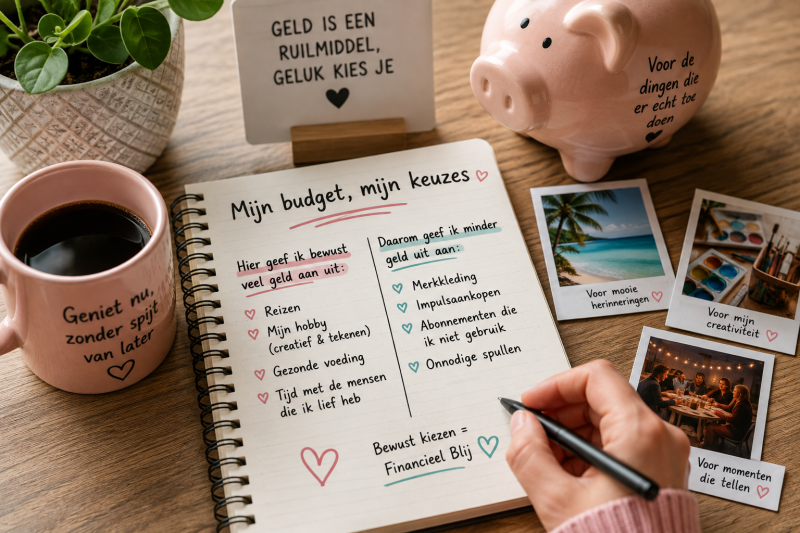 GELD IS EEN
RUILMIDDEL,
GELUK KIES JE
Voor de
dingen die
er echt toe
doen
Geniet nu,
zonder spijt
van later
Mijn budget, mijn keuzes
Hier geef ik bewust
veel geld aan uit:
Reizen
Mijn hobby
(creatief & tekenen)
Gezonde voeding
Tijd met de mensen
die ik lief heb
Daarom geef ik minder
geld uit aan:
Merkkleding
Impulsaankopen
Abonnementen die
ik niet gebruik
Onnodige spullen
Bewust kiezen =
Financieel Blij
Voor mooie
herinneringen
Voor mijn
creativiteit
Voor momenten
die tellen